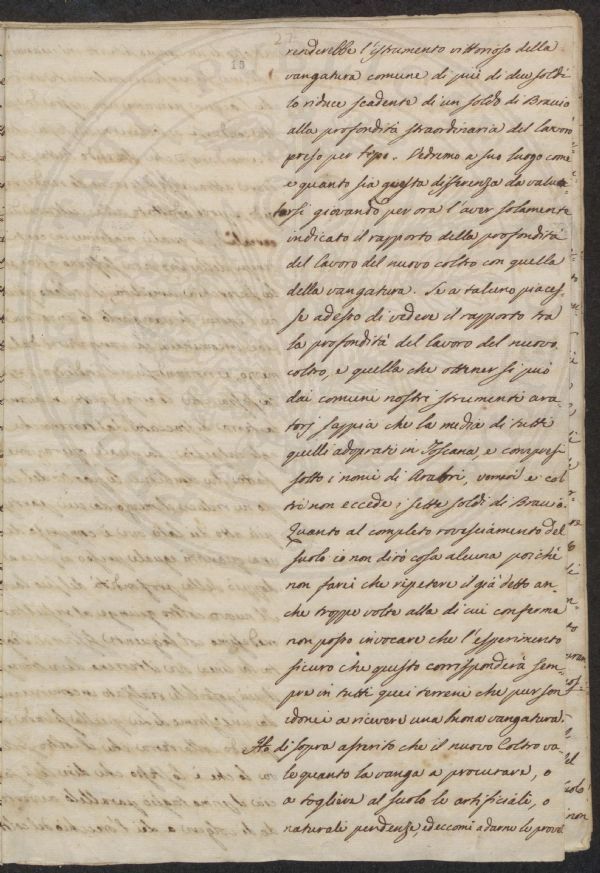 27
13
renderebbe l'istrumento vittorioso della
vangatura comune di più di due soldi
lo riduce scadente di un soldo di Braccio
alla profondità straordinaria del lavoro
preso per tipo. Vedremo a suo luogo come
e quanto sia questa differenza da valuta-
tarsi giovando per ora l'aver solamente
indicato il rapporto della profondità
del lavoro del nuovo coltro con quella
della vangatura. Se a taluno piaces-
se adesso di vedere il rapporto tra
la profondità del lavoro del nuovo
coltro, e quella che ottener si può
dai comune nostri strumenti ara-
torj sappia che la media di tutti
quelli adoprati in Toscana, e compresi
sotto i nomi di Aratri, vomeri e col-
tri non eccede i sette soldi di Braccio.
Quanto al completo rovesciamento del
suolo io non dirò cosa alcuna poichè
non farei che ripetere il già detto an-
che troppe volte alla di cui conferma
non posso invocare che l'esperimento
sicuro che questo corrisponderà sem-
pre in tutti quei terreni che pur son
idonei a ricevere una buona vangatura.
Ho di sopra asserito che il nuovo Coltro va-
le quanto la vanga a procurare, o
a togliere al suolo le artificiali, o
naturali pendenze, ed eccomi a darne le prove